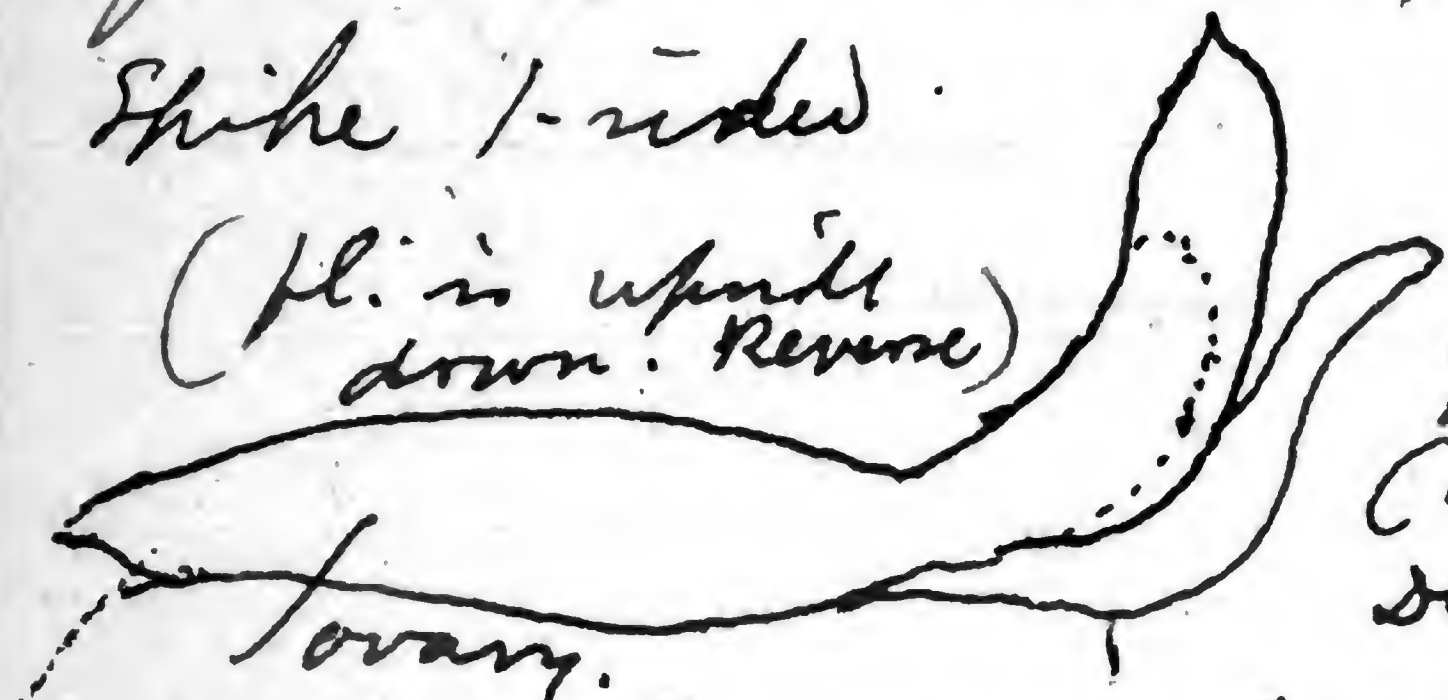 Spike 1-sided.
(fl. is upside
down. Reverse)
ovary.